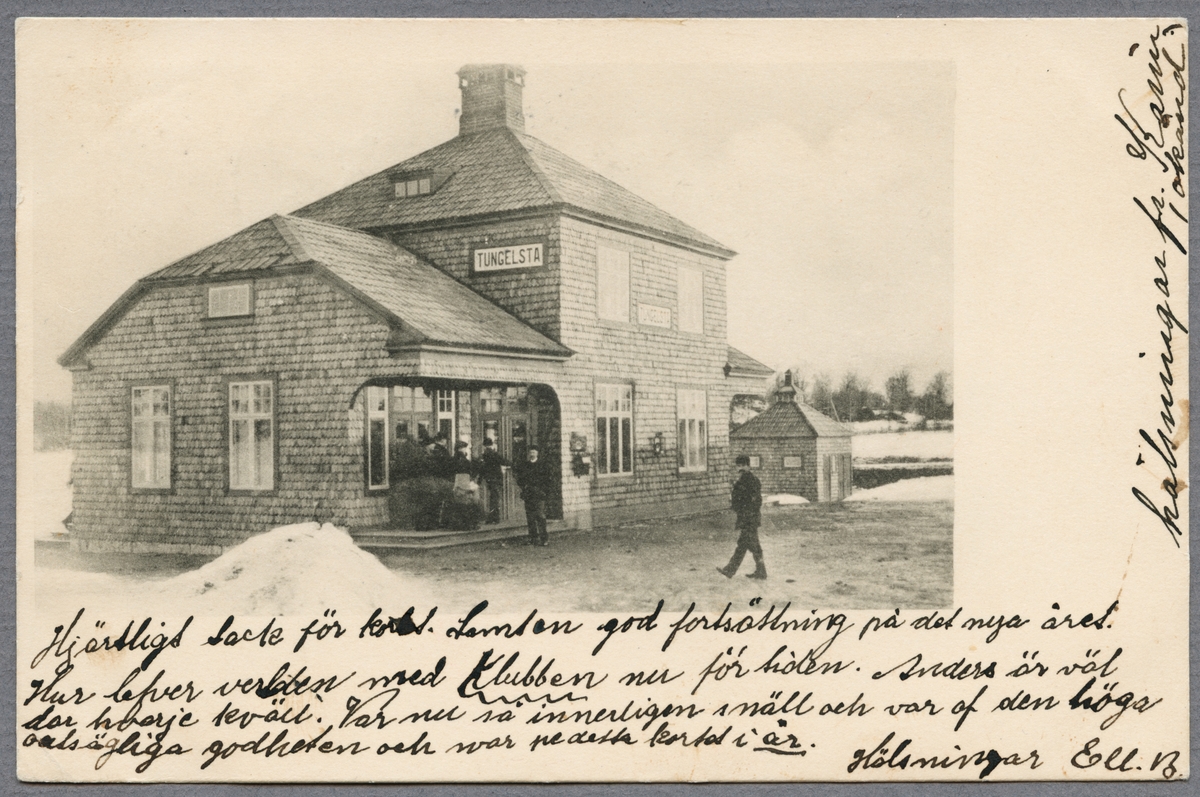 TUNGELSTA
TUNGELSTA
Hjärtligt tack för kortet. Samt en god fortsättning på det nya året.
Hur lefver verlden med Klubben nu för tiden. Anders är väl
dar hvarje kväll. Var nu så innerligen snäll och var af den höga
outsägliga godheten och war detta kortd i är.
Hälsningar Ell. B.
hälsningar fr. Karin
(okänd)